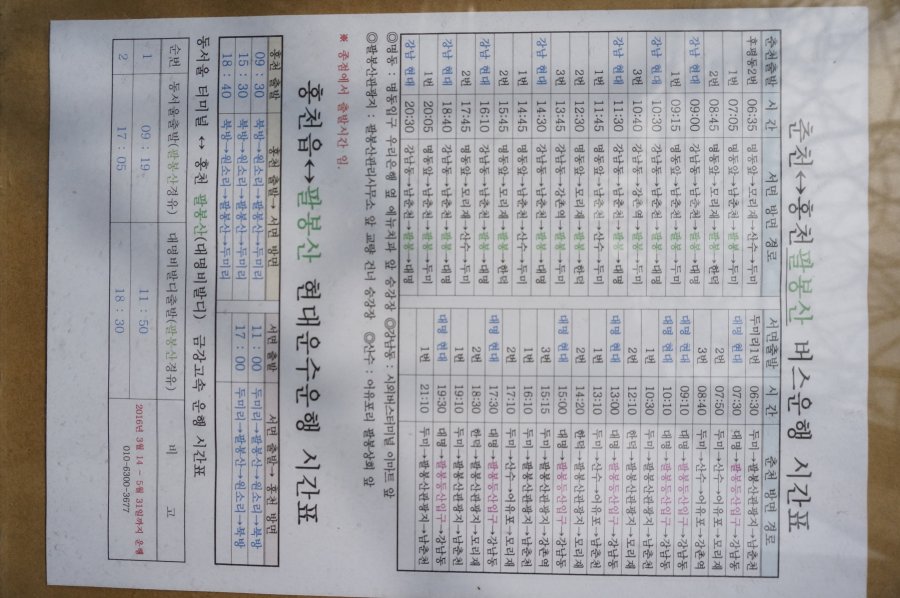 춘천↔홍천팔봉산 버스운행 시간표
춘천출발 시 간 서면 방면 경로 서면출발 시 간 춘천 방면 경로
후평동2번 06:35 명동앞→모리재→산수→두미 두미리1번 06:30 두미→팔봉산관광지→남춘천
1번 07:05 명동앞→남춘천→팔봉→두미 대명 현대 07:30 대명→팔봉등산입구→강남동
2번 08:45 명동앞→모리재→팔봉→한덕 2번 07:50 두미→산수→어유포→모리재
강남 현대 09:00 강남동→남춘천→팔봉→대명 3번 08:40 두미→산수→어유포→강촌역
1번 09:15 명동앞→남춘천→팔봉→두미 대명 현대 09:10 대명→팔봉등산입구→강남동
강남 현대 10:30 강남동→남춘천→팔봉→대명 대명 현대 10:10 대명→팔봉등산입구→강남동
3번 10:40 강남동→강촌역→팔봉→두미 1번 10:30 두미→팔봉산관광지→남춘천
강남 현대 11:30 강남동→남춘천→팔봉→대명 2번 12:10 한덕→팔봉산관광지→모리재
1번 11:45 명동앞→남춘천→산수→두미 대명 현대 13:00 대명→팔봉등산입구→강남동
2번 12:30 명동앞→모리재→팔봉→한덕 1번 13:10 두미→산수→어유포→남춘천
3번 13:45 강남동→강촌역→팔봉→두미 2번 14:20 한덕→팔봉산관광지→모리재
강남 현대 14:30 강남동→남춘천→팔봉→대명 대명 현대 15:00 대명→팔봉등산입구→강남동
1번 14:45 명동앞→남춘천→산수→두미 3번 15:15 두미→팔봉산관광지→강촌역
2번 15:45 명동앞→모리재→팔봉→한덕 1번 16:10 두미→팔봉산관광지→남춘천
강남 현대 16:10 강남동→남춘천→팔봉→대명 2번 17:10 두미→산수→어유포→모리재
2번 17:45 명동앞→모리재→산수→두미 대명 현대 17:30 대명→팔봉등산입구→강남동
강남 현대 18:40 강남동→남춘천→팔봉→대명 2번 18:30 한덕→팔봉산관광지→모리재
1번 20:05 명동앞→남춘천→팔봉→두미 1번 19:10 두미→팔봉산관광지→남춘천
강남 현대 20:30 강남동→남춘천→팔봉→대명 대명 현대 19:30 대명→팔봉등산입구→강남동
1번 21:10 두미→팔봉산관광지→남춘천
◎명동 : 명동입구 우리은행 옆 에뉴치과 앞 승강장 ◎강남동 : 시외버스터미널 이마트 앞
◎팔봉산관광지 : 팔봉산관리사무소 앞 교량 건너 승강장 ◎산수 : 어유포리 팔봉상회 앞
※ 종점에서 출발시간 임.
홍천읍↔팔봉산 현대운수운행 시간표
홍천 출발 홍천 출발→ 서면 방면 서면 출발 서면 출발→ 홍천 방면
09 : 30 북방→원소리→팔봉산→두미리 11 : 00 두미리→팔봉산→원소리→북방
15 : 30 북방→원소리→팔봉산→두미리 17 : 00 두미리→팔봉산→원소리→북방
18 : 40 북방→원소리→팔봉산→두미리
동서울 터미널 ↔ 홍천 팔봉산(대명비발디) 금강고속 운행 시간표
순번 동서울출발(팔봉산경유) 대명비발디출발(팔봉산경유) 비 고
1 09 : 19 11 : 50 2016년 3월 14 ~ 5월 31일까지 운행
2 17 : 05 18 : 30 010-6300-3677